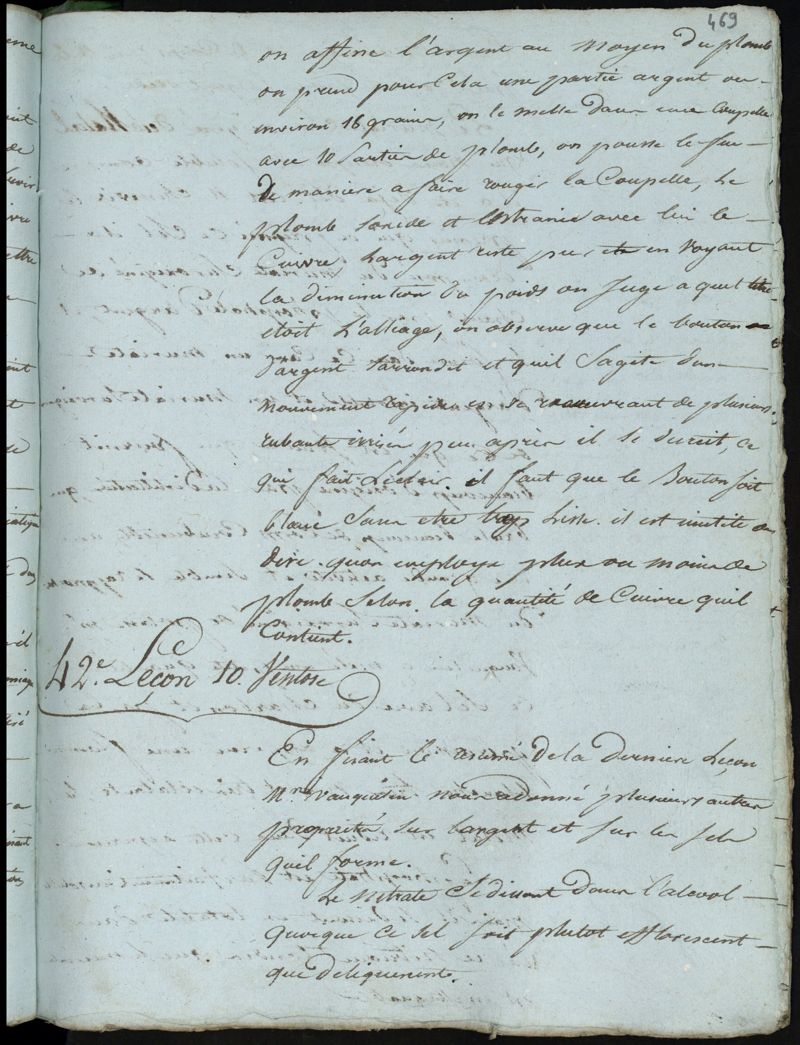 469
on affine l'argent au moyen du plomb
on prend pour cela une partie argent ou
environ 16 grains, on le mette dans une Coupelle
avec 10 parties de plomb, on pousse le feu
de manière a faire rougir la Coupelle, le
plomb soxide et Entraine avec lui le
Cuivre Largent reste pur en voyant
la diminution du poids on juge a quel titre
etoit L'alliage, on observe que le bouton
d'argent sarrondit et quil Sagite dun
mouvement rapide en se recouvrant de plusieurs
rubants irrisés peu après il se durcit, ce
qui fait Leclair. il faut que le Bouton soit
blanc Sans etre trop Lisse. il est inutile de
dire quon employe plus ou moins de
plomb Selon la quantité de Cuivre quil
Contient.
42e Leçon 10. Ventose
En fisant le resumé de la derniere Leçon
Mr Vauquelin nous a donné plusieurs autres
propriétés sur largent et sur les sels
quil forme.
Le nitrate Se dissout dans l'alcool
quoique ce sel soit plutot efflorescent
que deliquescent.